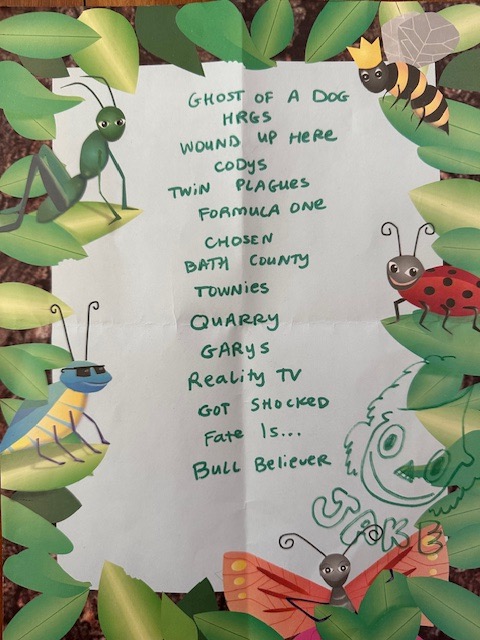 GHOST OF A DOG
HRGS
WOUND UP HERE
CODYS
TWIN PLAGUES
FORMULA ONE
CHOSEN
BATH COUNTY
TOWNIES
QUARRY
GARYS
Reality TV
GOT SHOCKED
Fate Is...
BULL Believer
JAKE